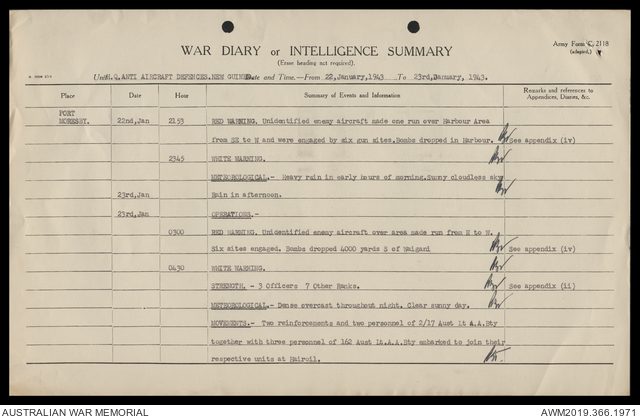 Army Form C. 2118
(adapted.)
WAR DIARY or INTELLIGENCE SUMMARY
(Erase heading not required).
Unit H.Q. ANTI AIRCRAFT DEFENCES. NEW GUINEA. Date and Time.—From 22,January,1943 To 23rd,January, 1943.
Place Date Hour Summary of Events and Information Remarks and references to Appendices, Diaries, &c.
PORT MORESBY. 22nd,Jan 2153 RED WARNING. Unidentified enemy aircraft made one run over Harbour Area
from SE to W and were engaged by six gun sites.Bombs dropped in Harbour. See appendix (iv)
2345 WHITE WARNING.
METEOROLOGICAL.- Heavy rain in early hours of morning.Sunny cloudless sky
23rd,Jan Rain in afternoon.
23rd,Jan OPERATIONS.-
0300 RED WARNING. Unidentified enemy aircraft over area made run from N to W.
Six sites engaged. Bombs dropped 4000 yards S of Waigani See appendix (iv)
0430 WHITE WARNING.
STRENGTH. - 3 Officers 7 Other Ranks. See appendix (ii)
METEOROLOGICAL.- Dense overcast throughout night. Clear sunny day.
MOVEMENTS.- Two reinforcements and two personnel of 2/17 Aust Lt A.A.Bty
together with three personnel of 162 Aust Lt.A.A.Bty embarked to join their
respective units at Hairoil.
AUSTRALIAN WAR MEMORIAL AWM2019.366.1971